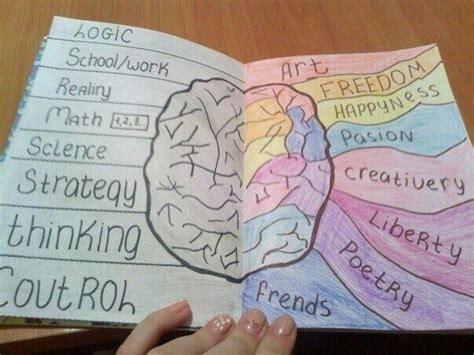 LOGIC
School/work
Reality
Math 1,2,3..
Science
Strategy
thinking
CoutRoh
Art
FREEDOM
HAPPYNESS
Pasion
Creativery
LiBeRty
Poetry
frends